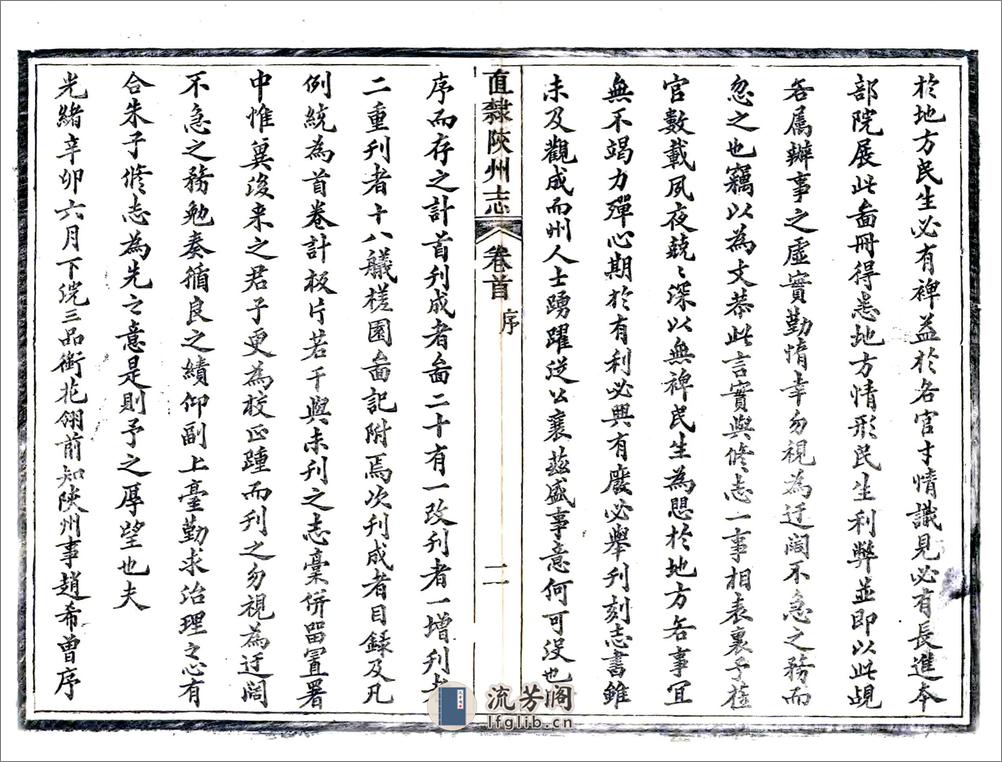 於地方民生必有裨益於各官才情識見必有長進本
部院展此畣冊得悉地方情形民生利弊並即以此覘
各属辦事之虛實勤惰幸勿視為迂闊不急之務而
忽之也竊以為文恭此言實與修志一事相表裏予莅
官數載夙夜兢〻深以無裨民生為愳於地方各事冝
無不竭力殫心期於有利必興有廢必舉刊刻志書雖
未及觀成而州人士踴躍送公襄茲盛事意何可沒也
直隸陝州志 卷首 序 二
序而存之計首刊成者畣二十有一改刊者一增刊者
二重刊者十八艤槎園畣記附焉次刊成者目錄及凡
例統為首卷計板片若干與未刊之志稾併畱置署
中惟兾後来之君子更為校正踵而刊之勿視為迂闊
不急之務勉奏循良之績仰副上臺勤求治理之心有
合朱子修志為先之意是則予之厚望也夫
光緒辛卯六月下浣三品銜花翎前知陝州事趙希曾序
流芳阁
lfglib.cn